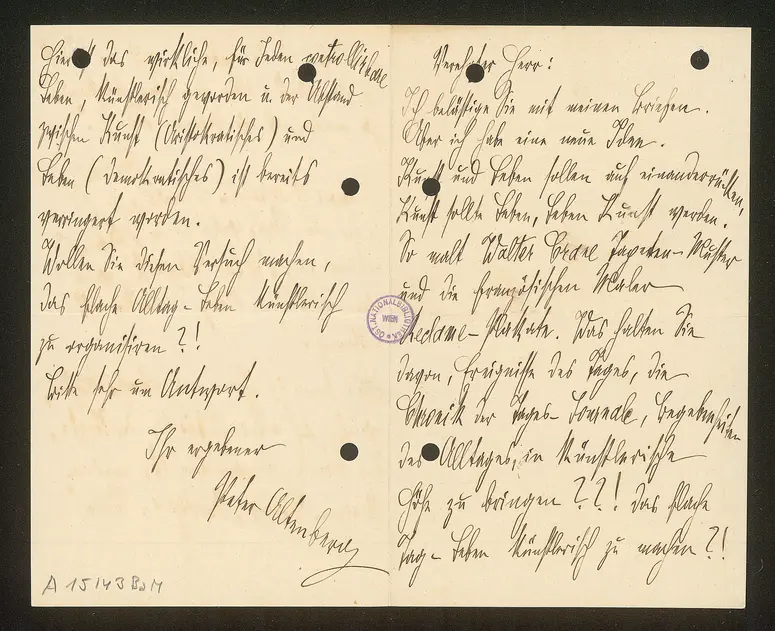 Verehrter Herr:
Ich belästige Sie mit meinen Briefen.
Aber ich habe eine neue Idee.
Kunst und Leben sollen auf einanderrücken,
Kunst sollte Leben, Leben Kunst werden.
So malt Walter Crane Tapeten-Muster
und die französischen Maler
Reclame-Plakate. Was halten Sie
davon, Ereignisse des Tages, die
Chronik der Tages-Journale, Begebenheiten
des Alltages, in künstlerische
Höhe zu bringen ??! Das flache
Tag-Leben künstlerisch zu machen ?!
Hier ist das wirkliche, für Jeden
Leben, künstlerisch geworden u. der Abstand
zwischen Kunst (Aristokratisches) und
Leben (Demokratisches) ist bereits
verringert worden.
Wollen Sie diesen Versuch machen,
das flache Alltag-Leben künstlerisch
zu organisiren ?!
Bitte sehr um Antwort.
Ihr ergebener
Peter Altenberg
ÖST. NATIONALBIBLIOTHEK
WIEN
A 15143 BaM